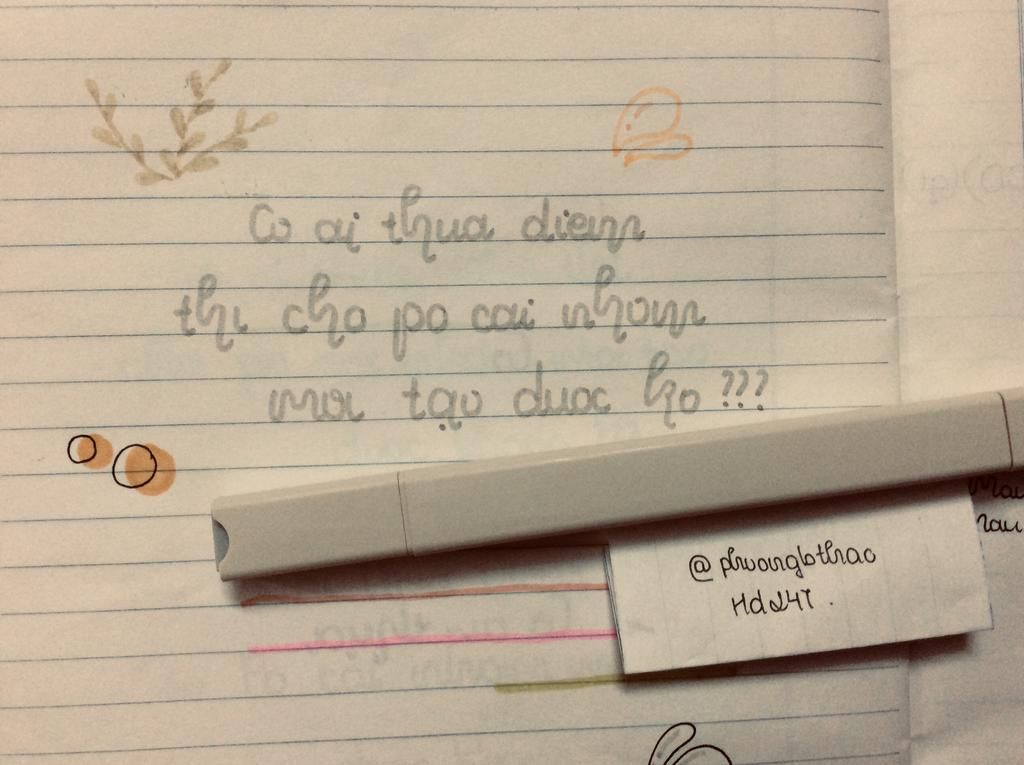 Co ai thua diem
thi cho po cai nhom
moi tạo duoc ko ???
@phuongbthao
Hd247.